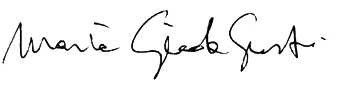 Maria Giada Giusti